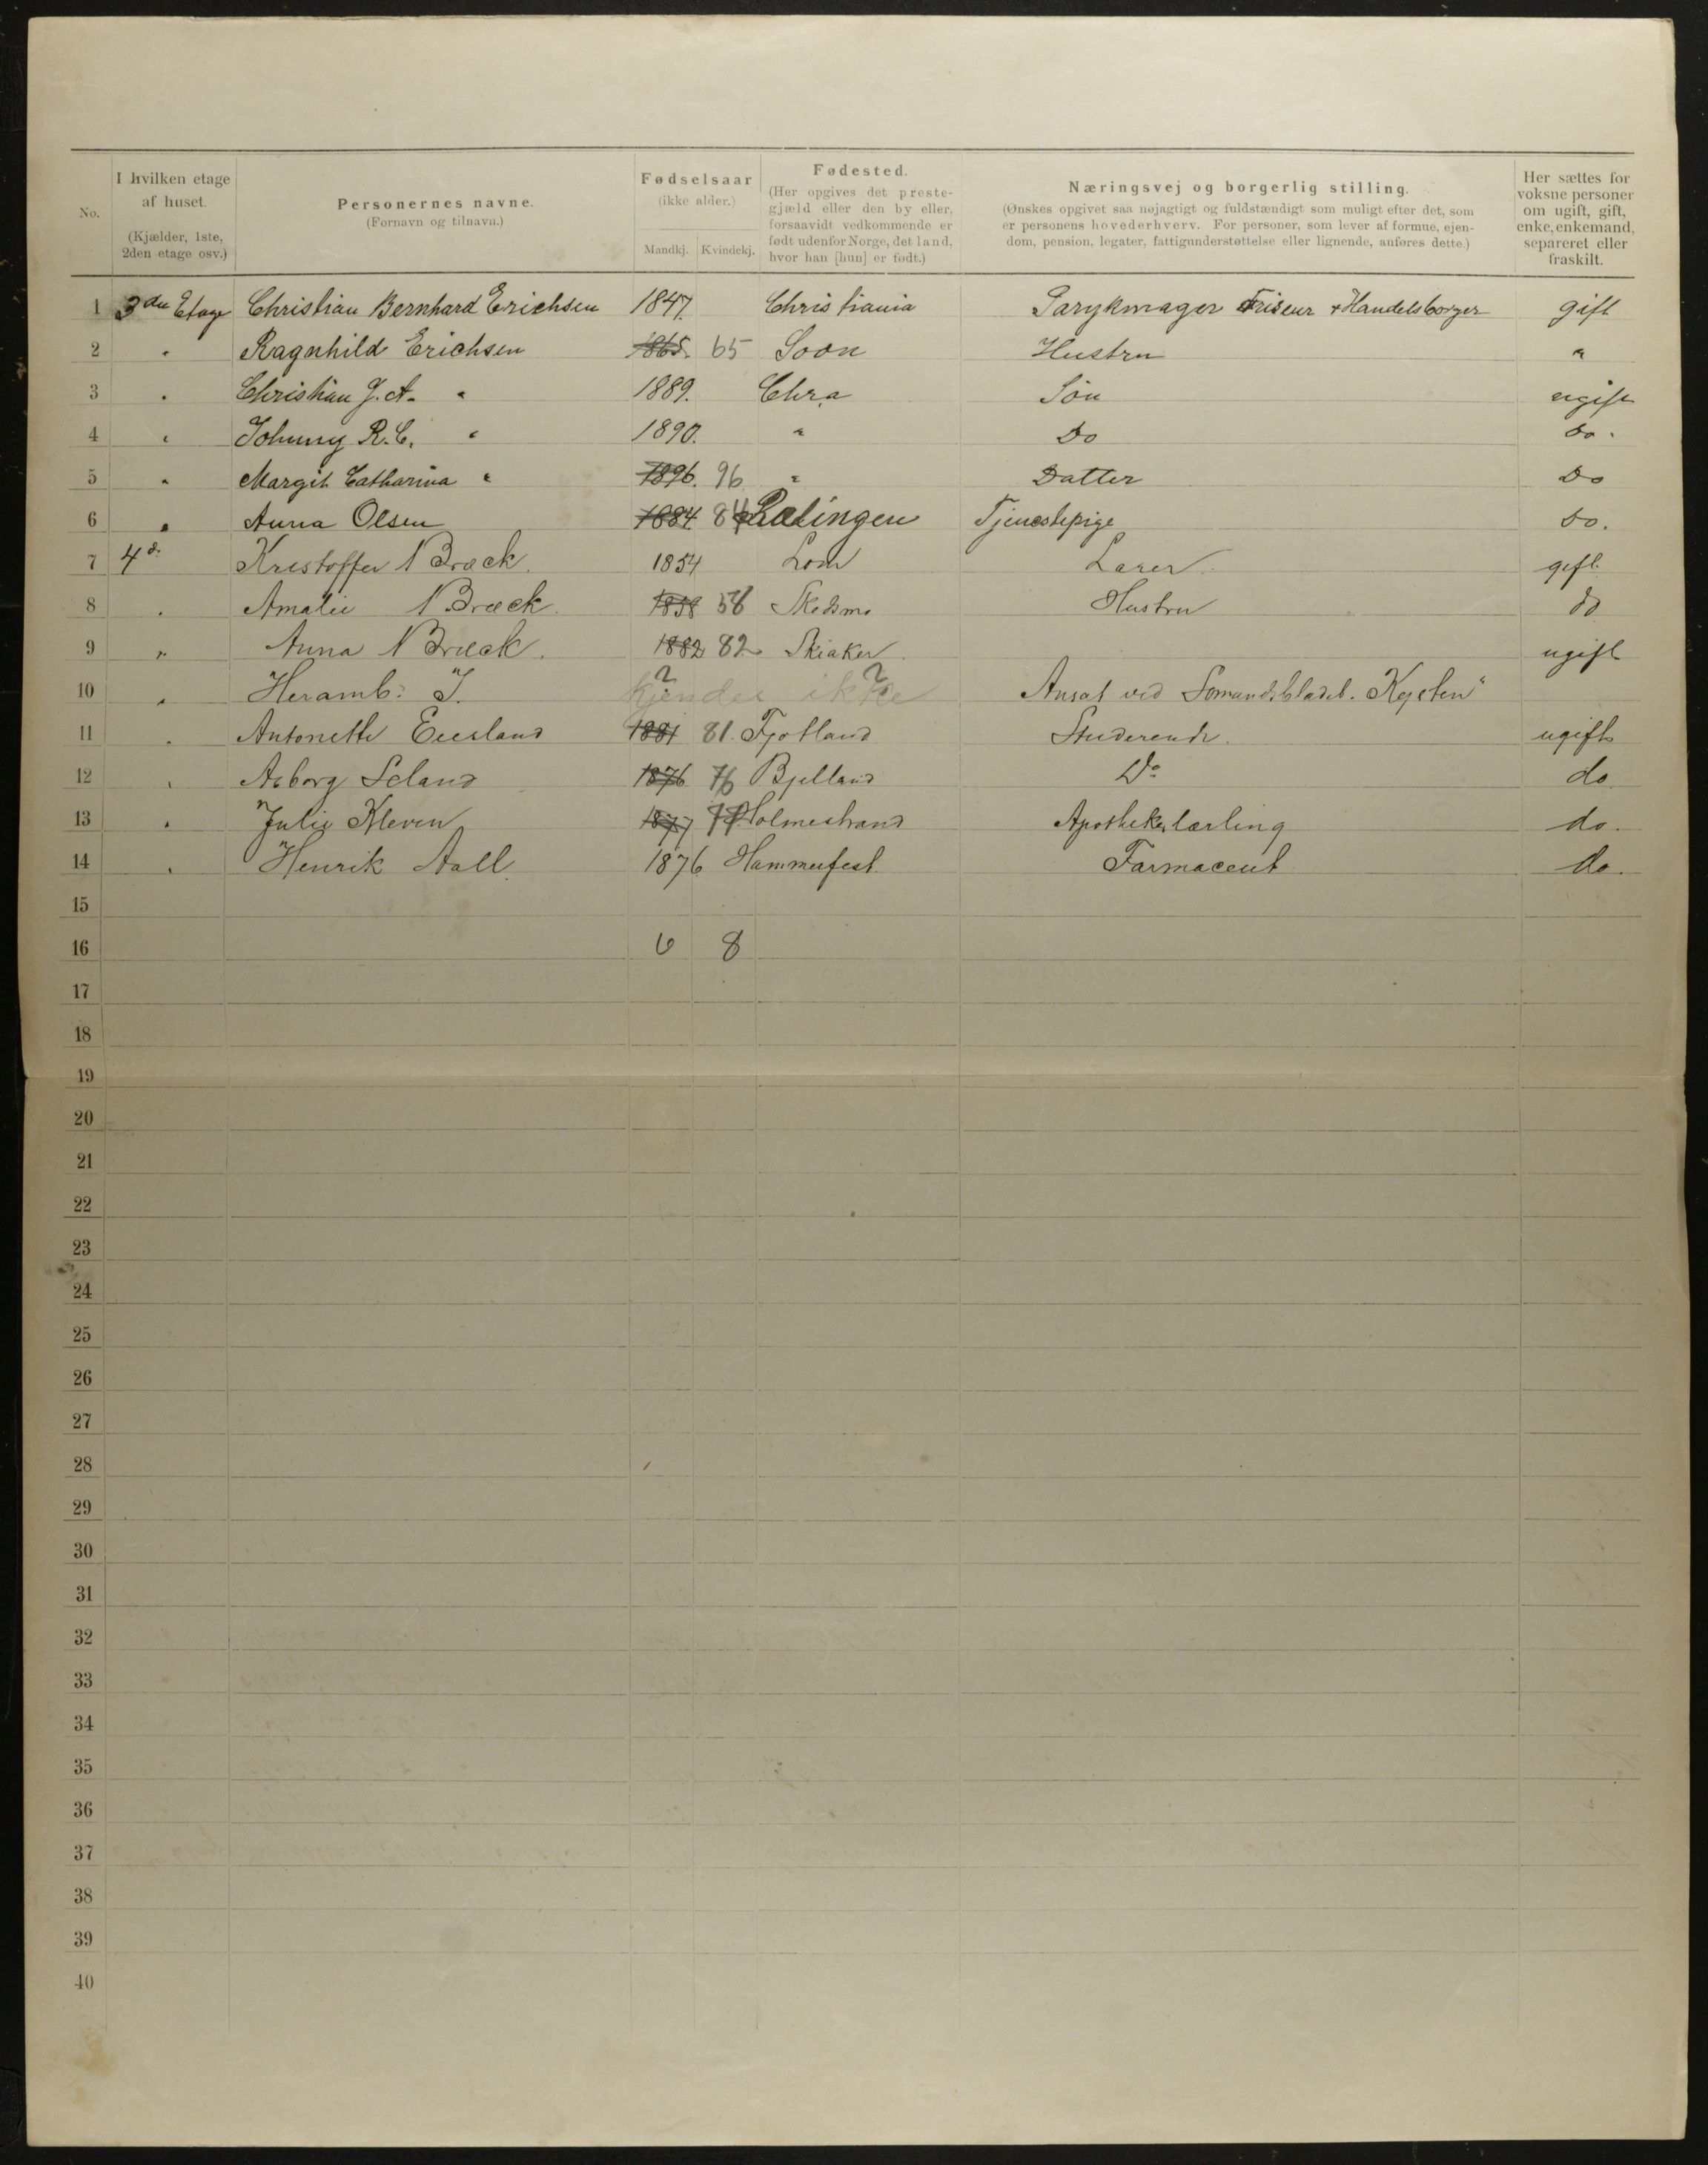 No. | I hvilken etage af huset. (Kjælder, 1ste, 2den etage osv.) | Personernes navne. (Fornavn og tilnavn.) | Fødselsaar (ikke alder.) Mandkj. Kvindekj. | Fødested. (Her opgives det prestegjæld eller den by eller, forsaavidt vedkommende er født udenfor Norge, det land, hvor han [hun] er født.) | Næringsvej og borgerlig stilling. (Ønskes opgivet saa nøjagtigt og fuldstændigt som muligt efter det, som er personens hovederhverv. For personer, som lever af formue, ejendom, pension, legater, fattigunderstøttelse eller lignende, anføres dette.) | Her sættes for voksne personer om ugift, gift, enke, enkemand, separeret eller fraskilt.
1 3die Etage Christian Bernhard Erichsen 1847. Christiania Parykmager Friseur + Handelsborger gift
2 " Ragnhild Erichsen 1865. 65 Soon Hustru "
3 " Christian J. A. " 1889. Chra Søn ugift
4 " Johnny R. C. " 1890. " Do Do.
5 " Margit Catharina " 1896. 96 " Datter Do
6 " Anna Olsen 1884. 84 Rælingen Tjenestepige Do.
7 4d. Kristoffer N Bræck. 1854 Lom Lærer gift.
8 " Amalie N Bræck. 1858 58 Skedsmo Hustru do
9 " Anna N Bræck. 1882 82 Skiaker. ugift
10 " Heramb: J. ? ? kjendes ikke Ansat ved Sømandsbladet "Kysten"
11 " Antonette Eiesland 1881 81. Fjotland Studerende. ugift
12 " Asborg Seland 1876 76 Bjelland Do do
13 " Julie Kleven 1877 77 Holmestrand Apothekerlærling do.
14 " Henrik Aall 1876 Hammerfest. Farmaceut do.
15
16 6 8
17
18
19
20
21
22
23
24
25
26
27
28
29
30
31
32
33
34
35
36
37
38
39
40